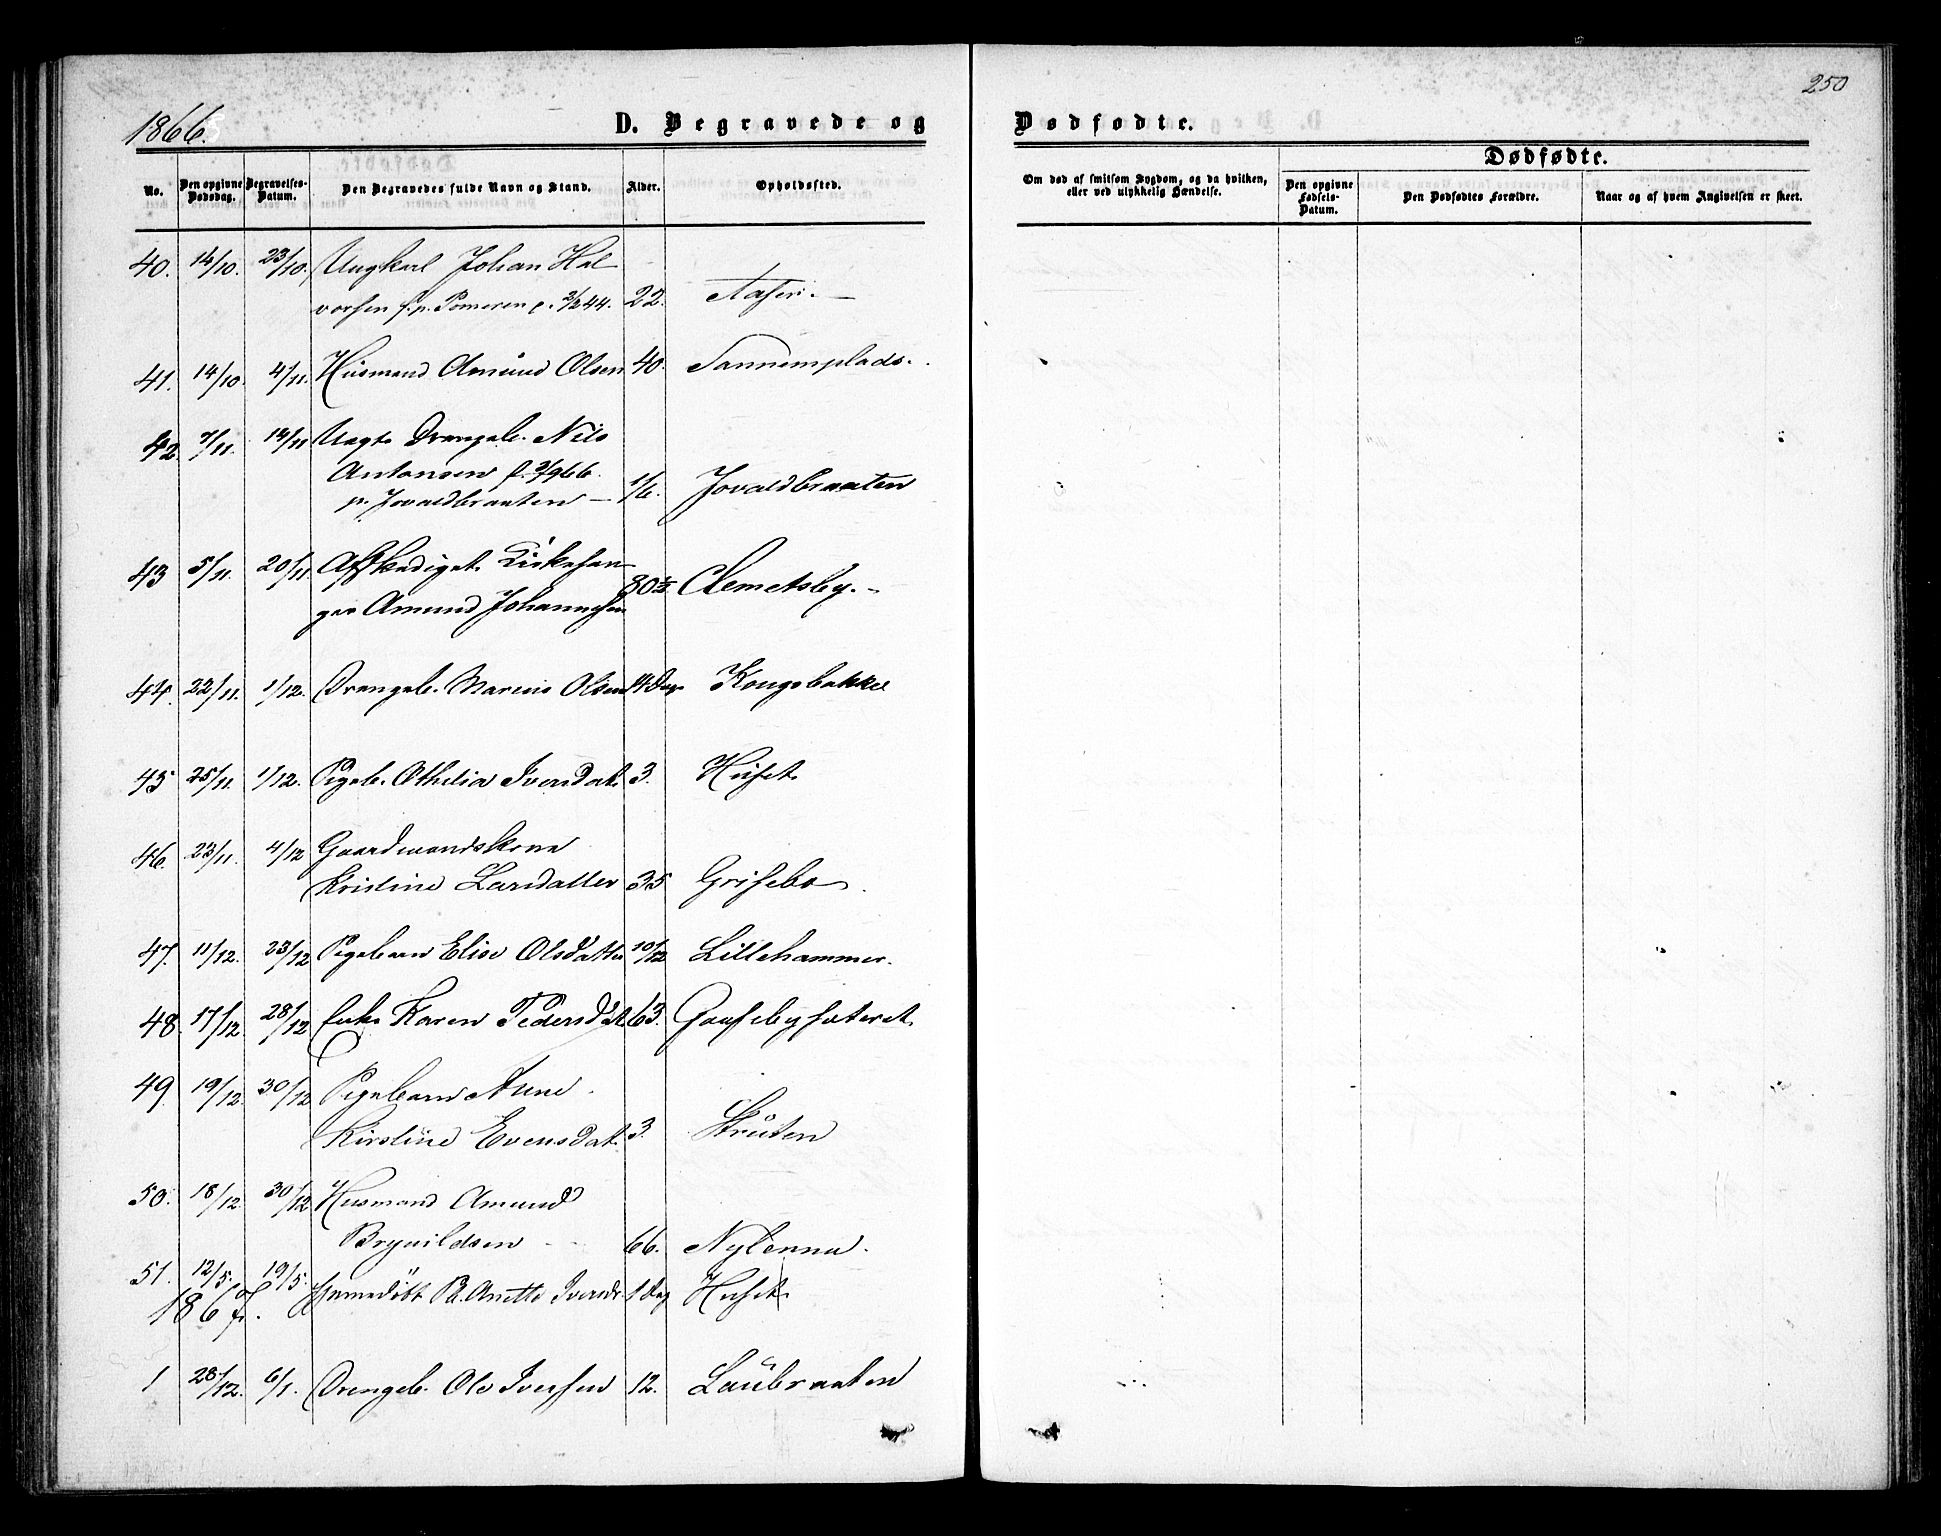 250
1866.
D. Begravede og Dødfødte.
No. Den opgivne Dødsdag. Begravelses-Datum. Den Begravedes fulde Navn og Stand. Alder. Opholdssted. Om død af smitsom Sygdom, og da hvilken, eller ved ulykkelig Hændelse. Dødfødte. Den opgivne Fødsels-Datum. Den Dødfødtes Forældre. Naar og af hvem Angivelsen er skeet.
40. 14/10. 23/10. Ungkarl Johan Hal
vorsen f. p. Pomeren 2/2 44. 22.
41. 14/10. 4/11. Husmand Amund Olsen 40. Sannemplads.
42. 7/11. 14/11 Uægte Drengeb. Nils
Antonsen f. 3/9 66.
p. Jovaldbraaten — 1/6. Jovaldbraaten
43 5/11. 20/11. Afskediget Kirkesan-
ger Amund Johannesen 80 1/2 Clemetsby.
44. 22/11. 1/12. Drengeb. Marius Olsen 14 Dage Kongsbakke
45 25/11. 1/12. Pigeb. Othelia Iversdat. 3. Huset
46. 23/11. 4/12 Gaardmandskone
Kristine Larsdatter 35 Grisebo.
47. 11/12. 23/12 Pigebarn Elise Olsdatter 10/12 Lillehammer.
48. 17/12. 28/12 Enke Karen Pedersdat. 63. Gaasebysæteret
49. 19/12. 30/12 Pigebarn Anne
Kirstine Evensdat. 3. Struten
50. 18/12. 30/12 Husmand Amund
Brynildsen 66. Nylenna.
51. 12/5. 19/5. Hjemedøbt Pb. Anette Iversdr. 1 Dag Huset
1867.
1 28/12. 6/1. Drengeb. Ole Iversen 12. Laubraaten